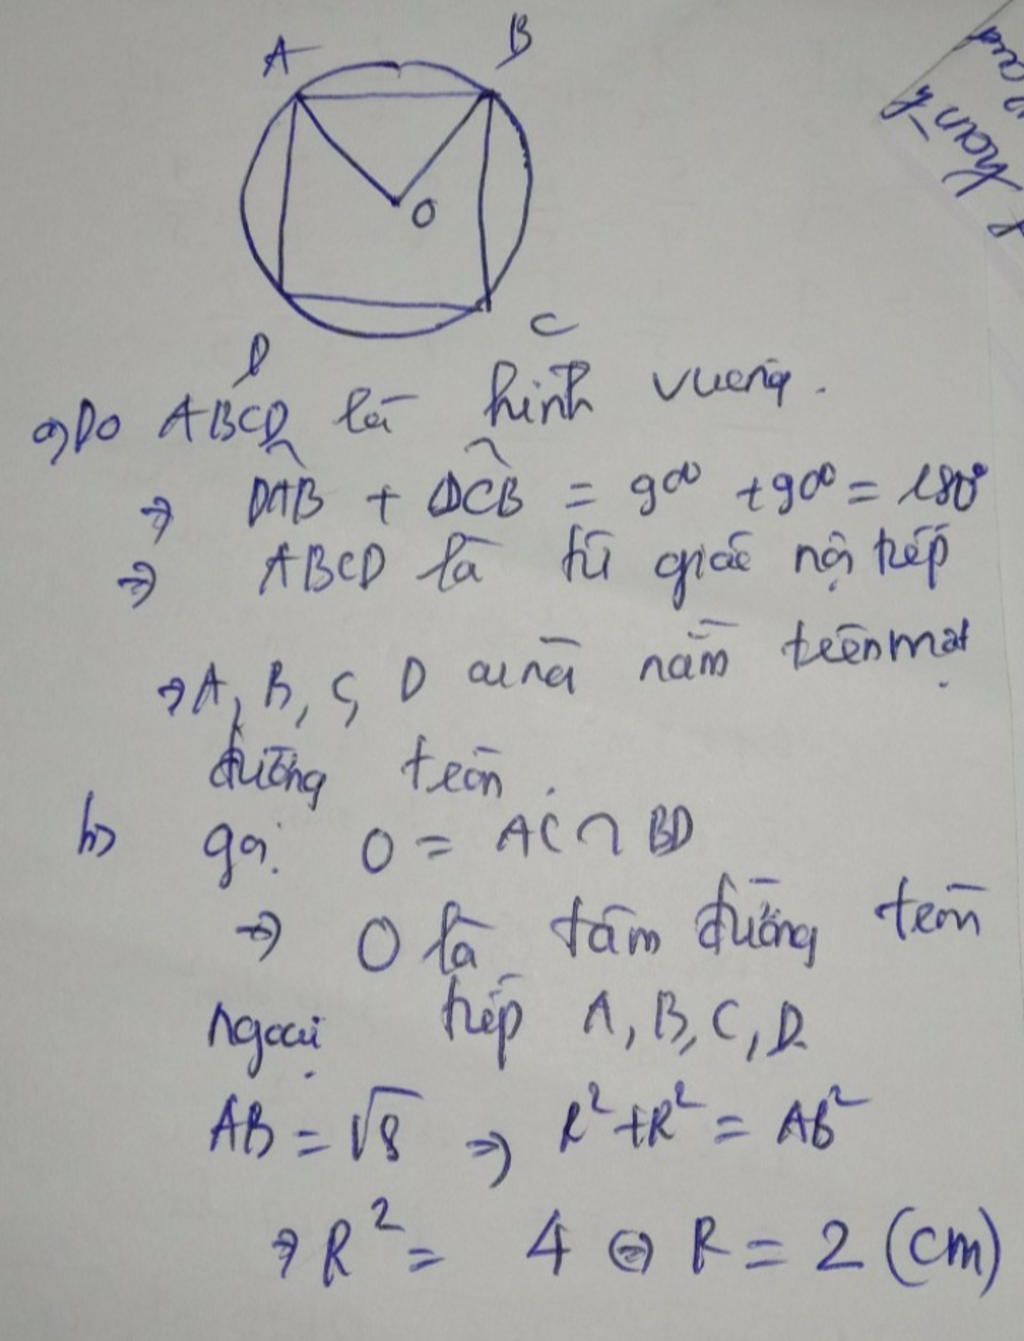 A
B
O
D
C
a) Do ABCD là hình vuông.
⇒ DAB + DCB = 90⁰ + 90⁰ = 180⁰
⇒ ABCD là tứ giác nội tiếp
⇒ A, B, C, D cùng nằm trên một
đường tròn.
b) gọi O = AC ∩ BD
⇒ O là tâm đường tròn
ngoại tiếp A, B, C, D.
AB = √8 ⇒ R² + R² = AB²
⇒ R² = 4 ⇔ R = 2 (cm)